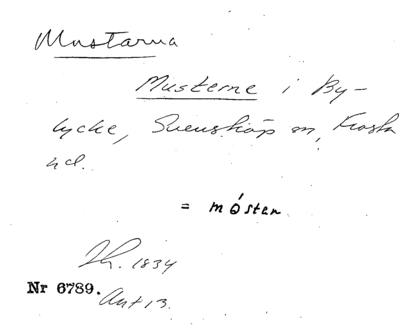 Mustarna
Musterne i By-
lycke, Svensköp sn, Frosta
hd.
= móstər
Th. 1834
Nr 6789. Ant 13.